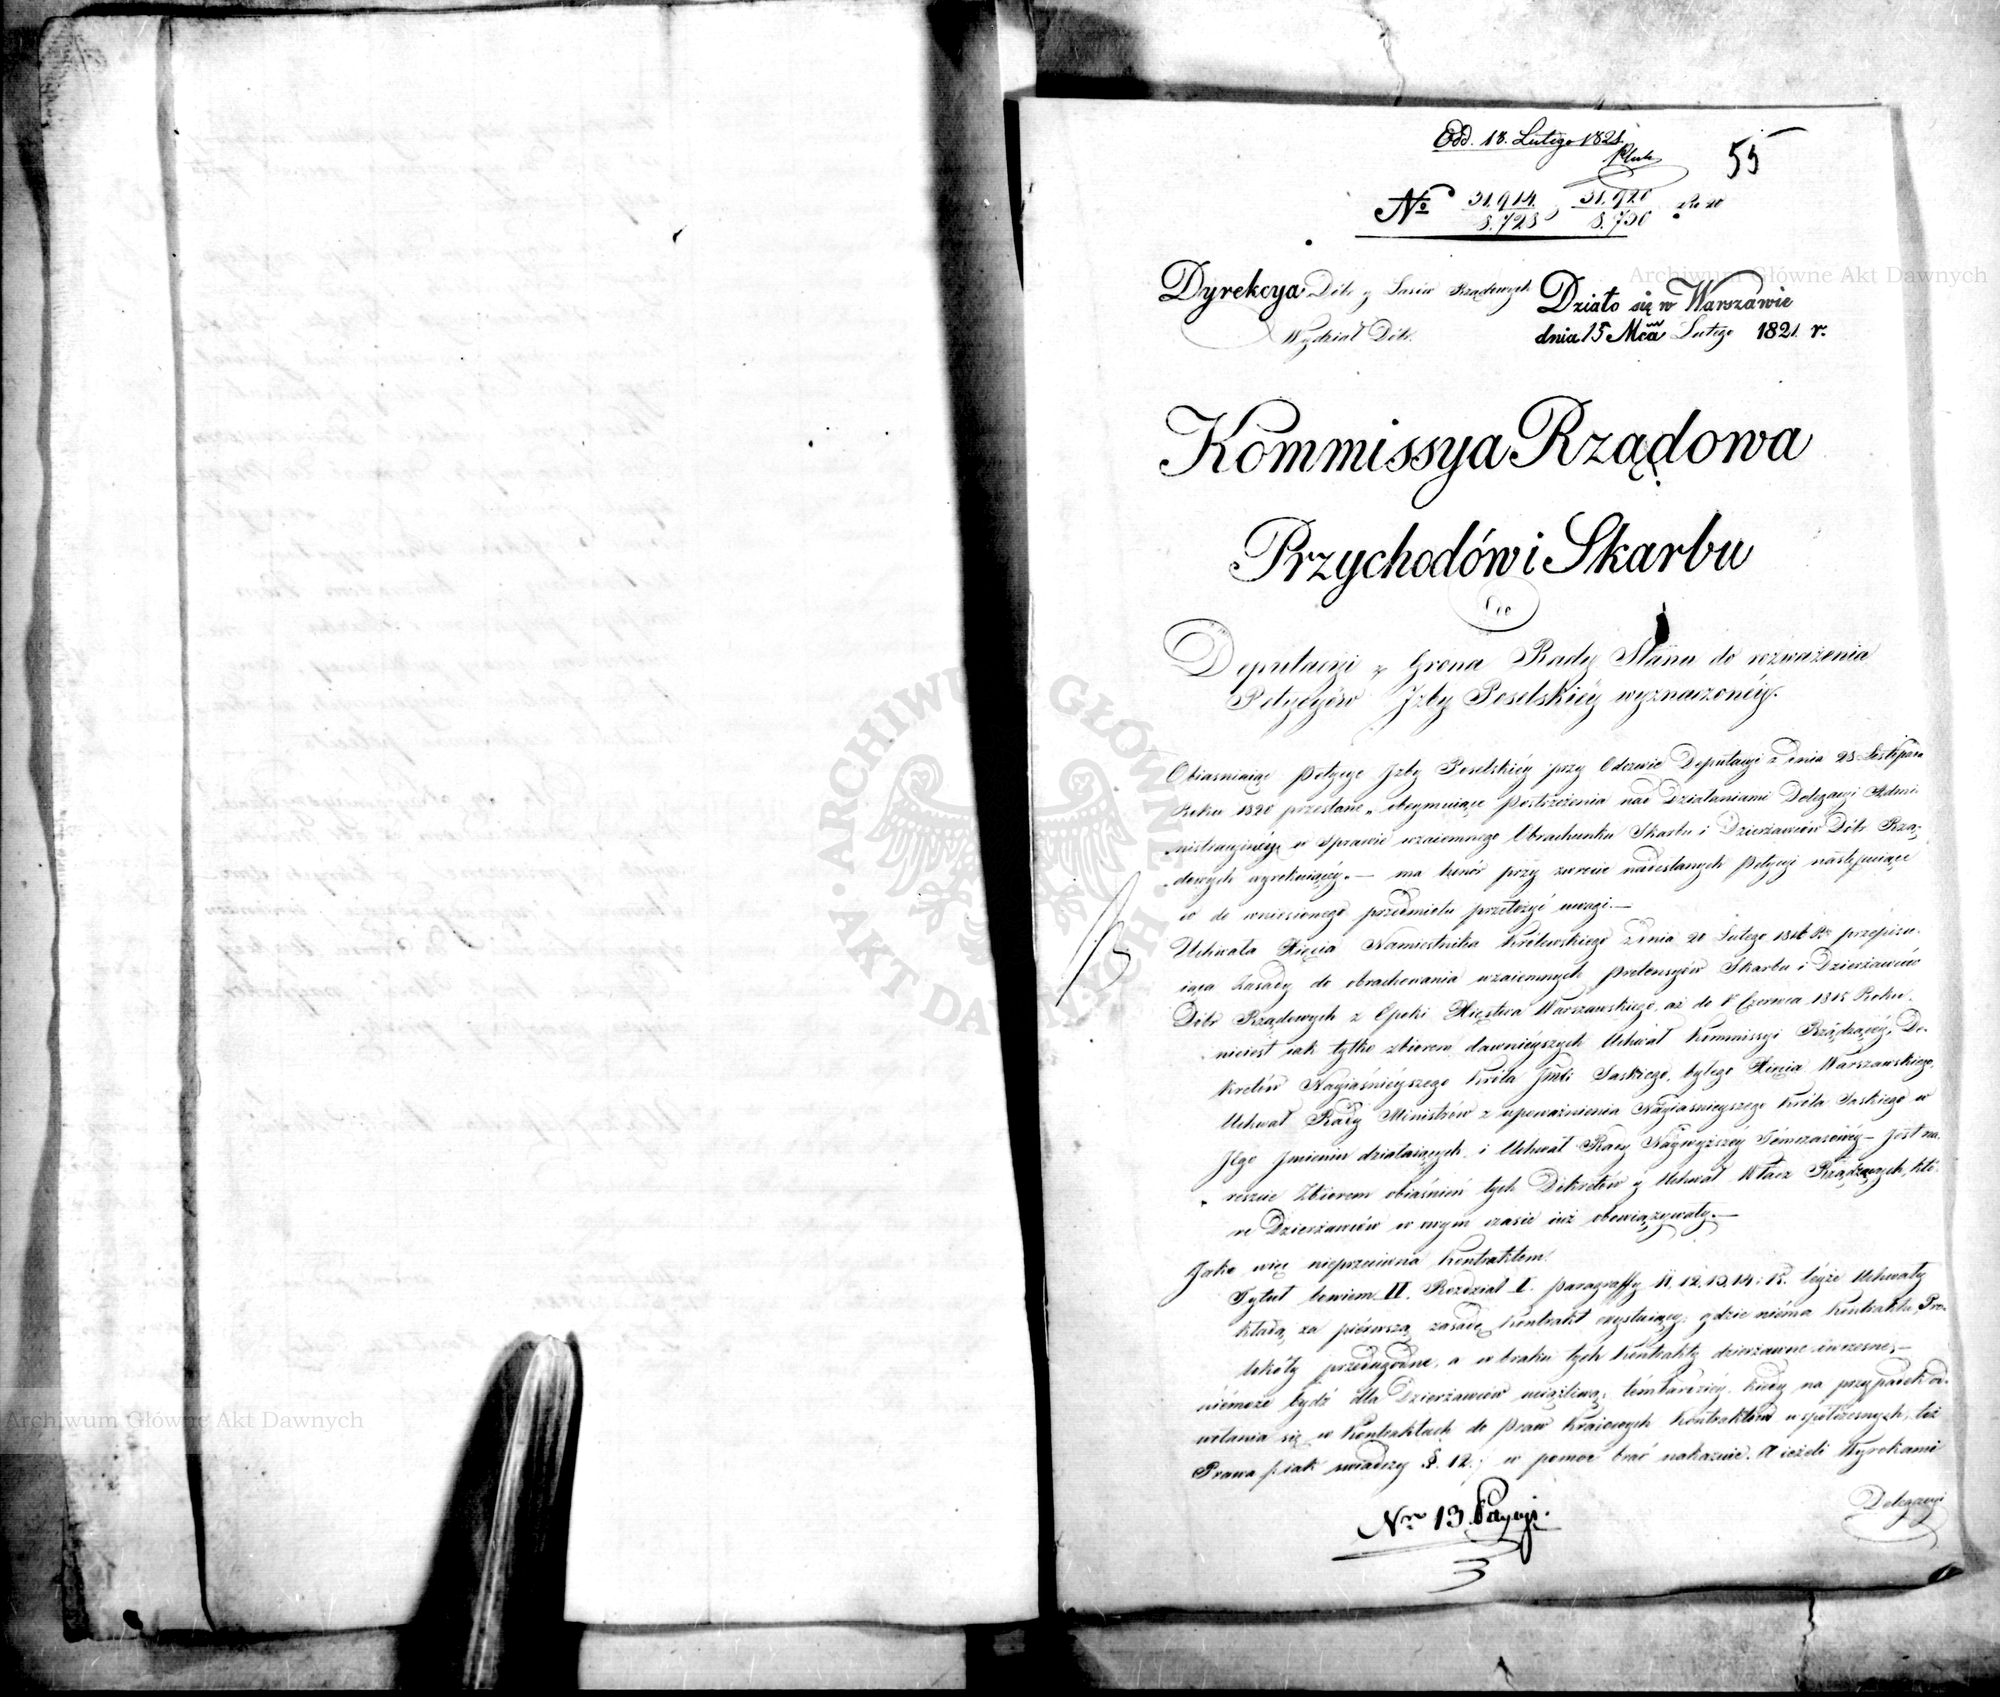 Odd. 18. Lutego 1821.
55
No 31,914. 31,920
8,728 8,730
Archiwum Główne Akt Dawnych
Dyrekcya Dóbr y Lasów Rządowych
Wydział Dóbr.
Działo się w Warszawie
dnia 15 Mca Lutego 1821. r.
Kommissya Rządowa
Przychodów i Skarbu
Do
Deputacyi z Grona Rady Stanu do rozważenia
Petycyów Izby Poselskiéy wyznaczonéy.
Obiaśniaiąc Petycye Izby Poselskiéy przy Odezwie Deputacyi z dnia 28 Listopada
Roku 1820 przesłane, obeymuiące postrzeżenia nad Działaniami Delegacyi Admi-
nistracyinéy w Sprawie wzaiemnego Obrachunku Skarbu i Dzierżawców Dóbr Rzą-
dowych wyrokuiącéy. — ma honór przy zwrocie nadesłanych Petycyi następuiące
co do wniesionego przedmiotu przełożyć uwagi. —
Uchwała Xięcia Namiestnika Królewskiego z dnia 20 Lutego 1816 Ro przepisu-
iąca Zasady do obrachowania wzaiemnych pretensyów Skarbu i Dzierżawców
Dóbr Rządowych z Epoki Xięstwa Warszawskiego, aż do 1o Czerwca 1815 Roku.
nieiest iak tylko zbiorem dawnieyszych Uchwał Kommissyi Rządzącéy, De-
kretów Nayiaśnieyszego Króla Jmći Saskiego, byłego Xięcia Warszawskiego,
Uchwał Rady Ministrów z upoważnienia Nayiaśnieyszego Króla Saskiego w
Jego Jmieniu działaiących, i Uchwał Rady Naywyższéy Tymczasowéy — Jest na-
reszcie Zbiorem obiaśnień tych Dekretów y Uchwał Władz Rządzących, któ-
re Dzierżawców w swym czasie iuż obowiązywały. —
Jako więc nieprzeciwna Kontraktom.
Tytuł bowiem II. Rozdział I. paragraffy 11, 12, 13, 14 i 15. téyże Uchwały
kładą za piérwszą zasadę Kontrakt exystuiący, gdzie niéma Kontraktu, Pro-
tokóły przedugodne, a w braku tych Kontrakty dzierżawne wczesne, —
niémoże bydź dla Dzierżawców uciążliwą, témbardziéy, kiedy na przypadek od-
wołania się w Kontraktach do praw Kraiowych Kontraktom współczesnych, też
Prawa /: iak świadczy §. 12 :/ w pomoc brać nakazuie. A ieżeli Wyrokami
Delegacyi
Nro 13. Petycyi.
3
Archiwum Główne Akt Dawnych
ARCHIWUM GŁÓWNE AKT DAWNYCH